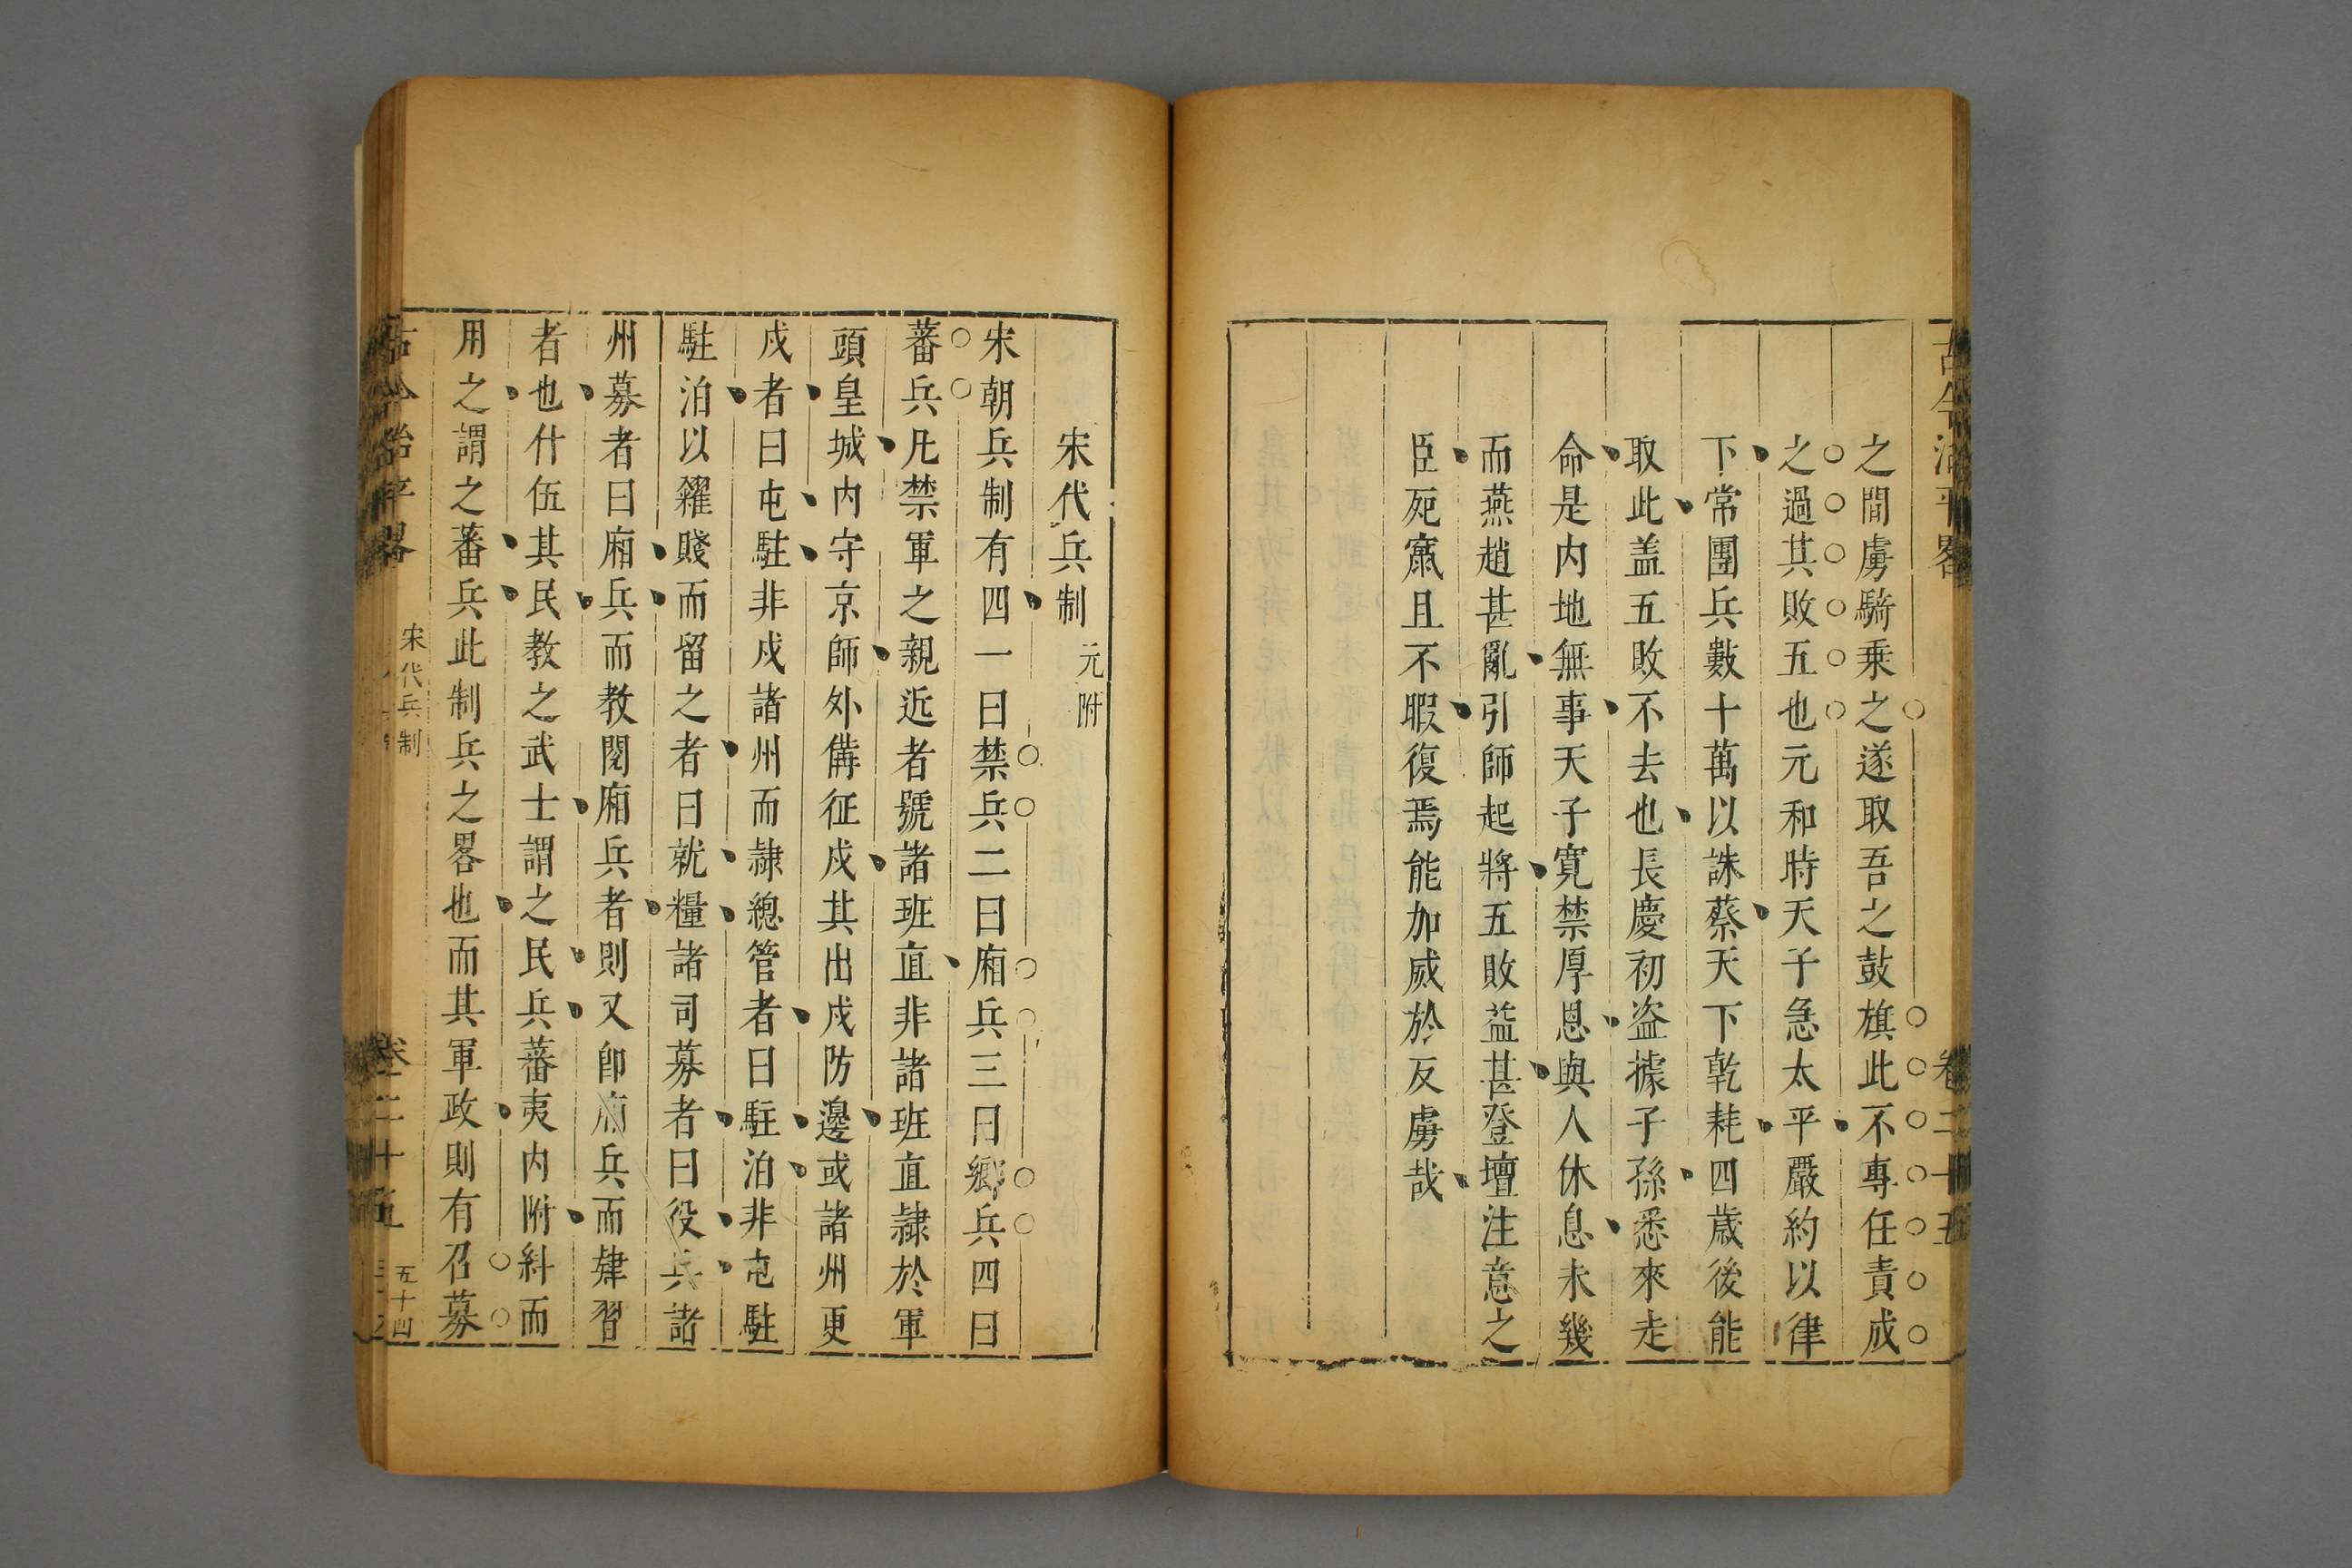 古今治平畧
卷二十五
之間虜騎乘之遂取吾之鼓旗此不專任責成
之過其敗五也元和時天子急太平嚴約以律
下常團兵數十萬以誅蔡天下乾耗四歲後能
取此盖五敗不去也長慶初盗據子孫悉來走
命是内地無事天子寬禁厚恩與人休息未幾
而燕趙甚亂引師起將五敗益甚登壇注意之
臣死竄且不暇復焉能加威於反虜哉
宋代兵制 元附
宋朝兵制有四一曰禁兵二曰廂兵三曰鄉兵四曰
蕃兵凡禁軍之親近者號諸班直非諸班直隷於軍
頭皇城内守京師外備征戍其出戍防邊或諸州更
戍者曰屯駐非戍諸州而隷總管者曰駐泊非屯駐
駐泊以糴賤而留之者曰就糧諸司募者曰役兵諸
州募者曰廂兵而教閱廂兵者則又卽廂兵而肄習
者也什伍其民教之武士謂之民兵蕃夷内附糾而
用之謂之蕃兵此制兵之畧也而其軍政則有召募
古今治平畧
宋代兵制
卷二十五
五十四